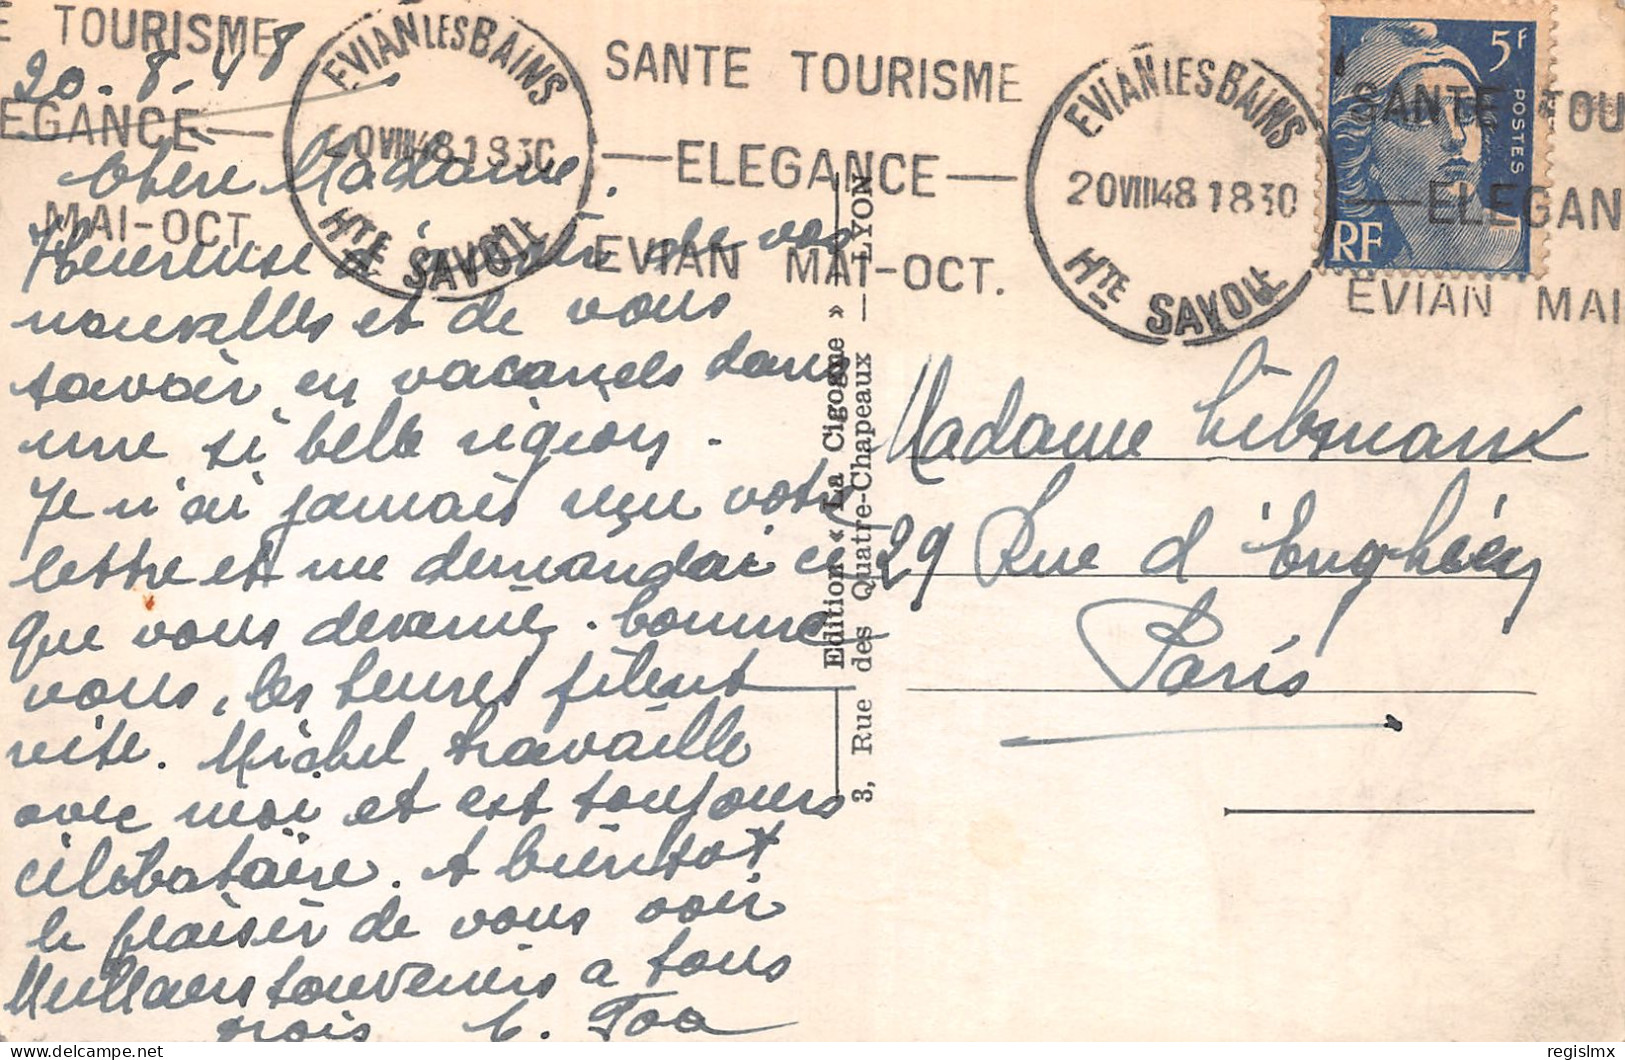 E TOURISME
20.8.48
EGANCE—
MAI-OCT.
EVIAN LES BAINS
20 VIII 48 1830
HTE SAVOIE
SANTE TOURISME
—ELEGANCE—
EVIAN MAI-OCT.
EVIAN LES BAINS
20 VIII 48 1830
HTE SAVOIE
5F
POSTES
RF
SANTE TOU
—ELEGAN
EVIAN MAI
Chère Madame.
Heureuse d'avoir de vos
nouvelles et de vous
savoir en vacances dans
une si belle région.
Je n'ai jamais reçu votre
lettre et me demandai ce
que vous deveniez. Comme
vous, les heures filent
vite. Michel travaille
avec moi et est toujours
célibataire. A bientot
le plaisir de vous voir
Meilleurs souvenirs a tous
trois
Edition « La Cigogne » — LYON
3, Rue des Quatre-Chapeaux
Madame Libmann
29 Rue d'Enghien
Paris
© regislmx